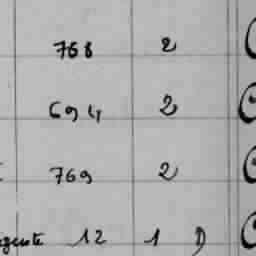 768 2
694 2
769 2
12 1 D